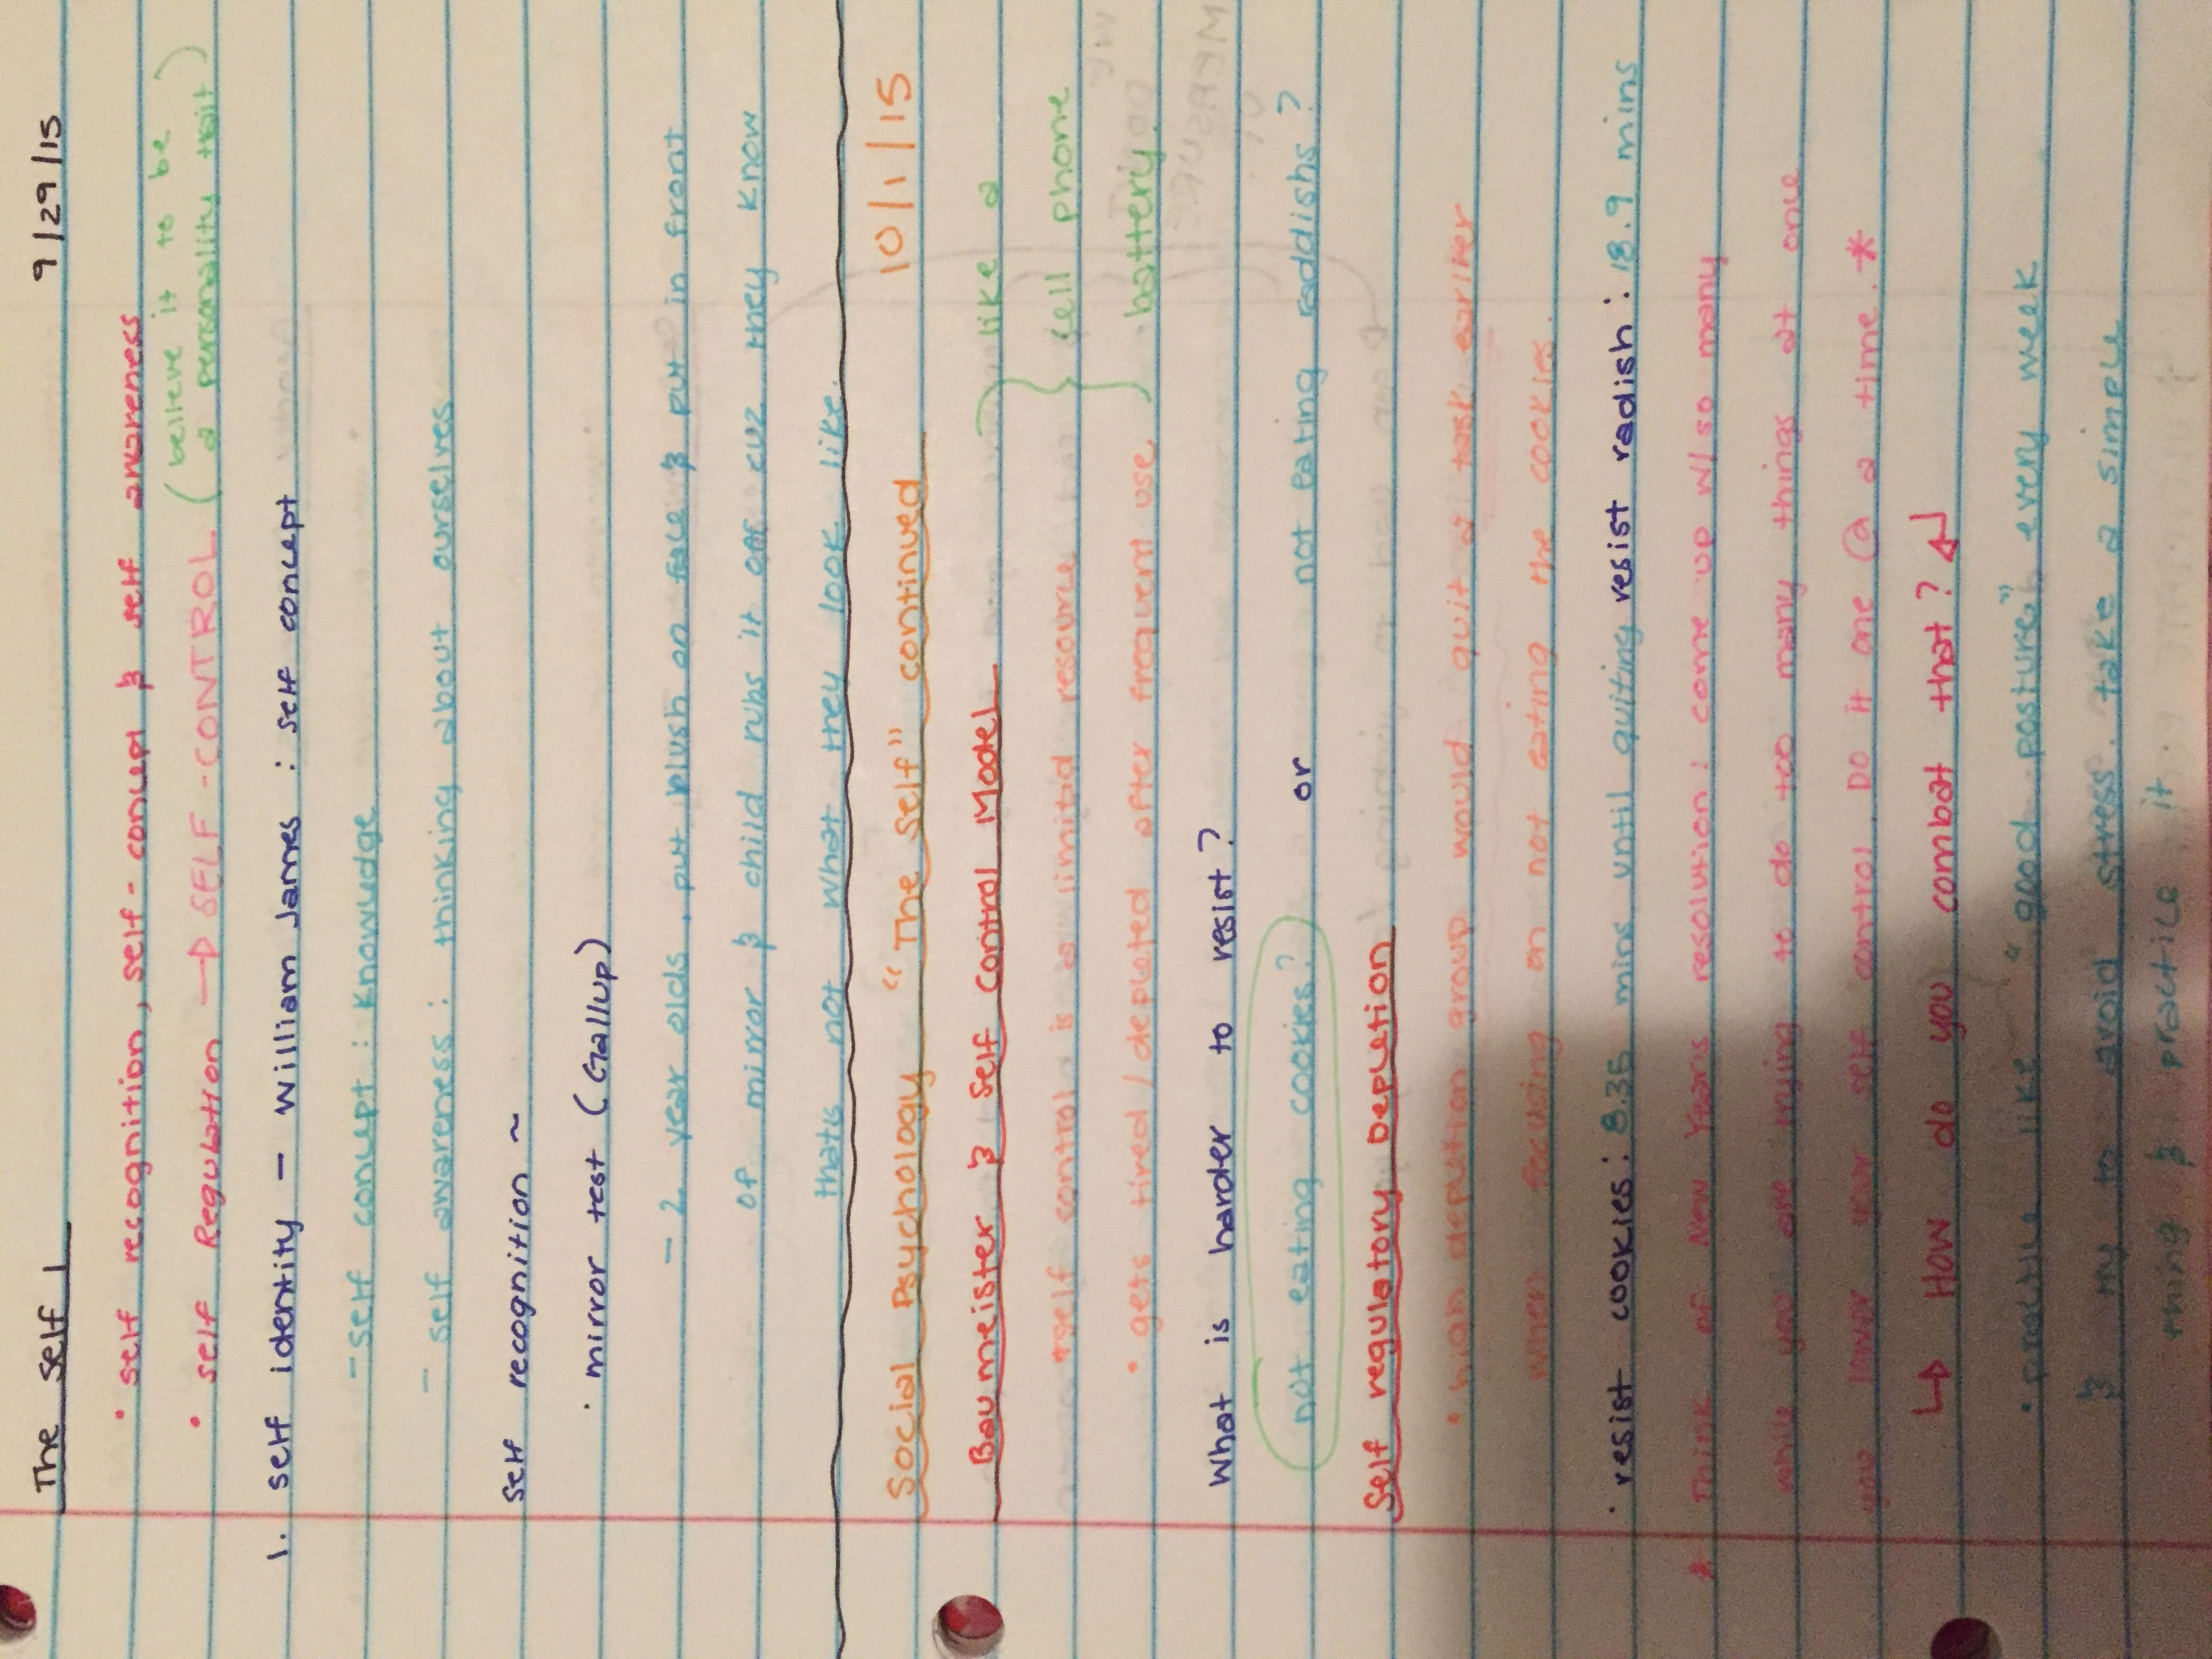 The Self 9/29/15
• self recognition, self-concept & self awareness
• Self Regulation → SELF-CONTROL (believe it to be
a personality trait)
1. self identity - William James : self concept
- self concept : knowledge
- self awareness : thinking about ourselves
self recognition ~
• mirror test (Gallup)
- 2 year olds, put blush on face & put in front
of mirror & child rubs it off cuz they know
thats not what they look like.
Social Psychology "The Self" continued 10/1/15
Baumeister & Self Control Model
• self control is a limited resource
• gets tired/depleted after frequent use.
} like a
cell phone
battery.
What is harder to resist?
not eating cookies? or not eating raddishs?
Self regulatory Depletion
• high depletion group would quit a task earlier
when focusing on not eating the cookies.
• resist cookies: 8.35 mins until quiting resist radish: 18.9 mins
* Think of New Years resolution: come up w/ so many
while you are trying to do too many things at one
you lower your self control. Do it one @ a time. *
↳ How do you combat that? ↵
• practice like "good posture" every week
& try to avoid stress. take a simple
thing & practice it